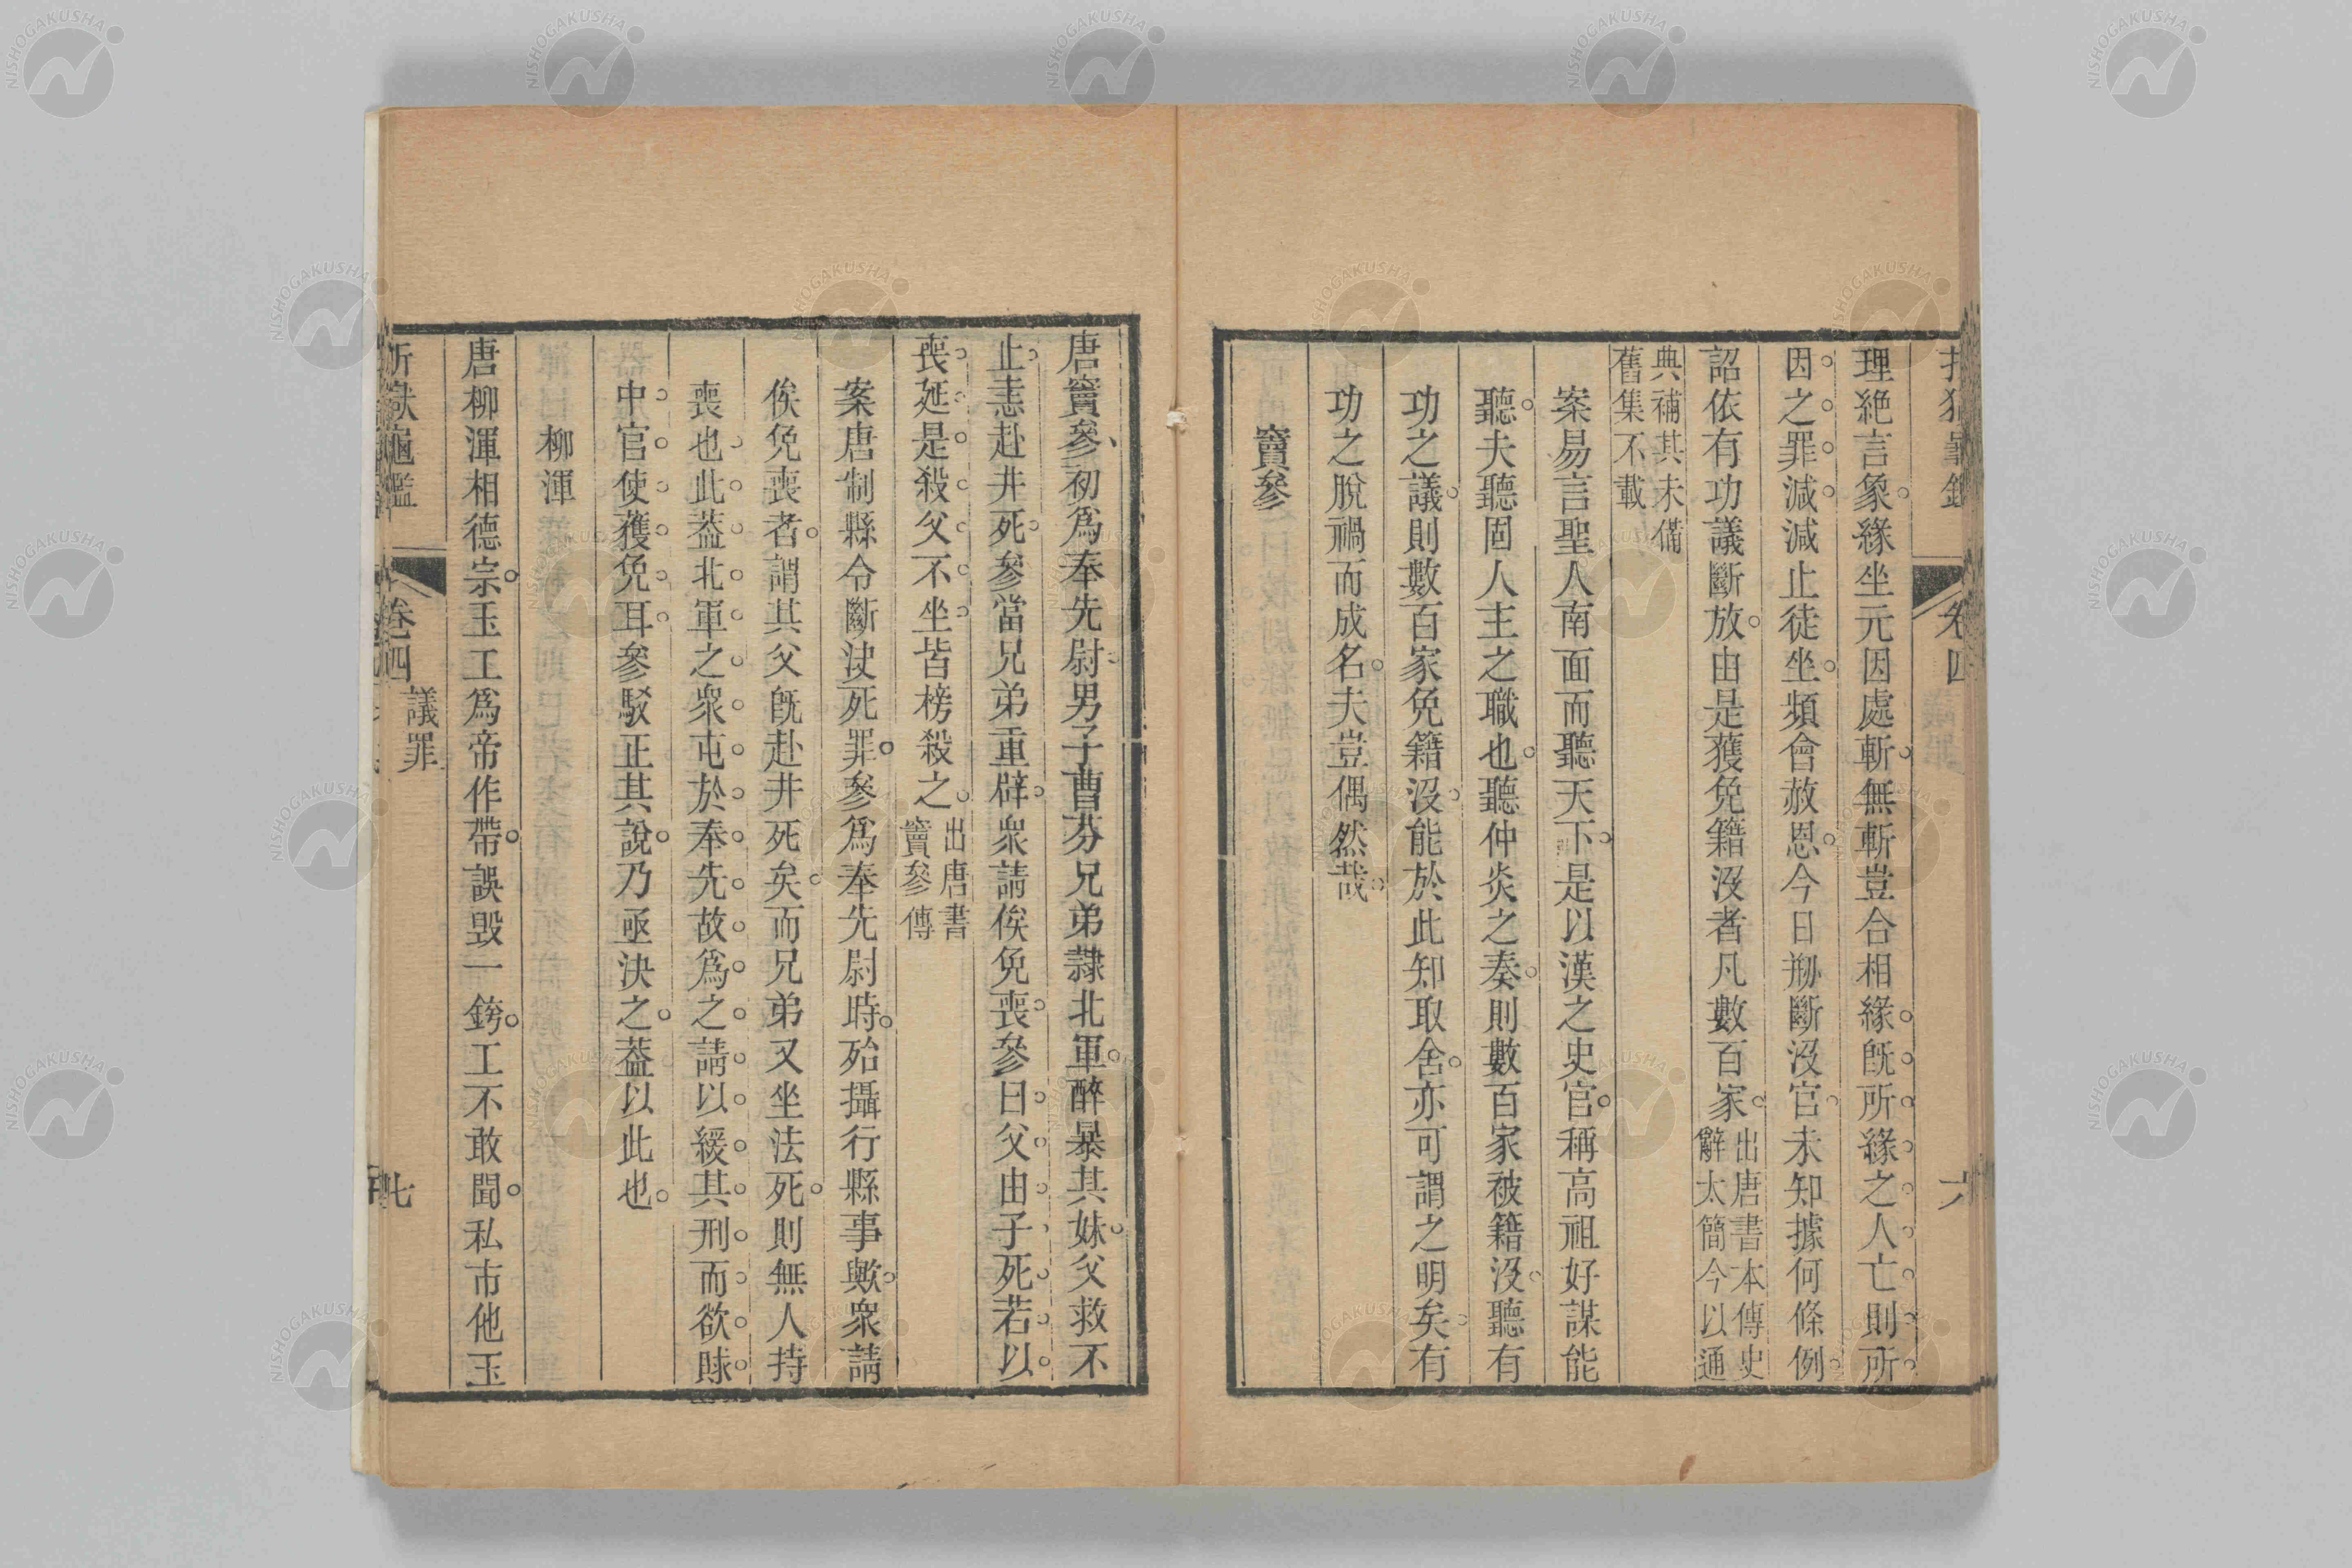 理絶言象緣坐元因處斬無斬豈合相緣旣所緣之人亡則所
因之罪減減止徒坐頻會赦恩今日刱斷沒官未知據何條例
詔依有功議斷放由是獲免籍沒者凡數百家出唐書本傳史辭太簡今以通
典補其未備舊集不載
案易言聖人南面而聽天下是以漢之史官稱高祖好謀能
聽夫聽固人主之職也聽仲炎之奏則數百家被籍沒聽有
功之議則數百家免籍沒能於此知取舍亦可謂之明矣有
功之脫禍而成名夫豈偶然哉
竇參
卷四
六
唐竇參初爲奉先尉男子曹芬兄弟隷北軍醉暴其妹父救不
止恚赴井死參當兄弟重辟衆請俟免喪參曰父由子死若以
喪延是殺父不坐皆榜殺之出唐書竇參傳
案唐制縣令斷決死罪參爲奉先尉時殆攝行縣事歟衆請
俟免喪者謂其父旣赴井死矣而兄弟又坐法死則無人持
喪也此葢北軍之衆屯於奉先故爲之請以緩其刑而欲賕
中官使獲免耳參駁正其說乃亟決之葢以此也
柳渾
唐柳渾相德宗玉工爲帝作帶誤毀一銙工不敢聞私市他玉
折獄龜鑑
卷四
議罪
七
NISHOGAKUSHA